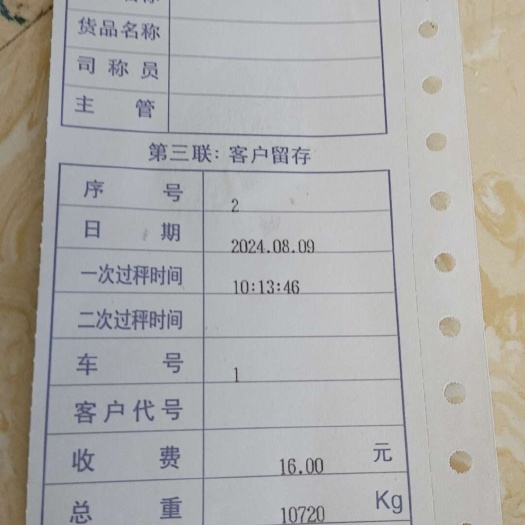 货品名称
司称员
主管
第三联：客户留存
序号 2
日期 2024.08.09
一次过秤时间 10:13:46
二次过秤时间
车号 1
客户代号
收费 16.00 元
总重 10720 Kg